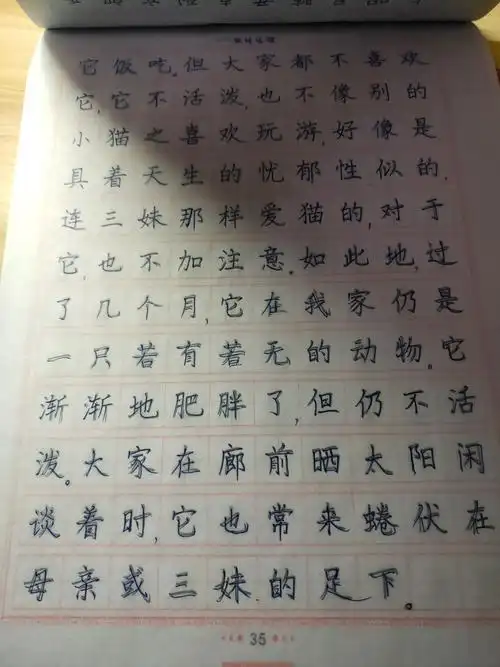 它饭吃。但大家都不喜欢
它,它不活泼,也不像别的
小猫之喜欢玩游,好像是
具着天生的忧郁性似的,
连三妹那样爱猫的,对于
它,也不加注意。如此地,过
了几个月,它在我家仍是
一只若有若无的动物。它
渐渐地肥胖了,但仍不活
泼。大家在廊前晒太阳闲
谈着时,它也常来蜷伏在
母亲或三妹的足下。
35